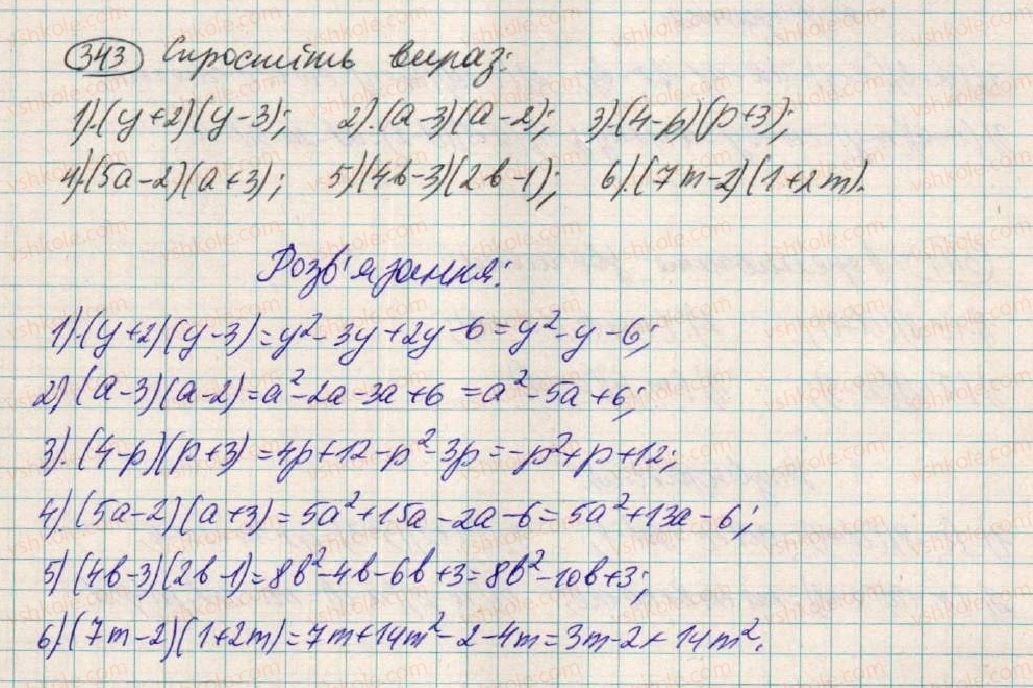 343 Спростіть вираз:
1).(y+2)(y-3); 2).(a-3)(a-2); 3).(4-p)(p+3);
4).(5a-2)(a+3); 5).(4b-3)(2b-1); 6).(7m-2)(1+2m).
Розв'язання:
1).(y+2)(y-3)=y²-3y+2y-6=y²-y-6;
2) (a-3)(a-2)=a²-2a-3a+6=a²-5a+6;
3).(4-p)(p+3)=4p+12-p²-3p=-p²+p+12;
4).(5a-2)(a+3)=5a²+15a-2a-6=5a²+13a-6;
5) (4b-3)(2b-1)=8b²-4b-6b+3=8b²-10b+3;
6).(7m-2)(1+2m)=7m+14m²-2-4m=3m-2+14m².